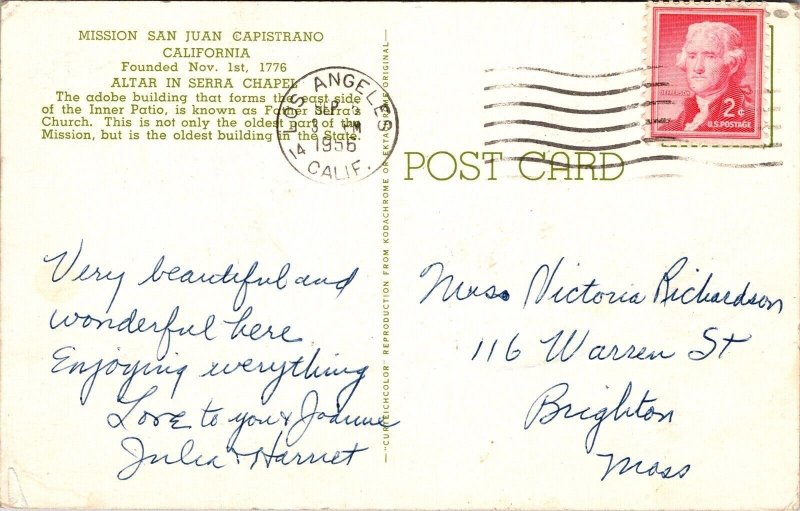 MISSION SAN JUAN CAPISTRANO
CALIFORNIA
Founded Nov. 1st, 1776
ALTAR IN SERRA CHAPEL
The adobe building that forms the east side
of the Inner Patio, is known as Father Serra's
Church. This is not only the oldest part of the
Mission, but is the oldest building in the State.
LOS ANGELES
SEP
3 PM
1956
14 CALIF.
JEFFERSON
2¢
U.S. POSTAGE
POST CARD
—"CURTEICHCOLOR" REPRODUCTION FROM KODACHROME OR EKTACHROME ORIGINAL—
Very beautiful and
wonderful here
Enjoying everything
Love to you & Joanne
Julia & Harriet
Miss Victoria Richardson
116 Warren St
Brighton
Mass